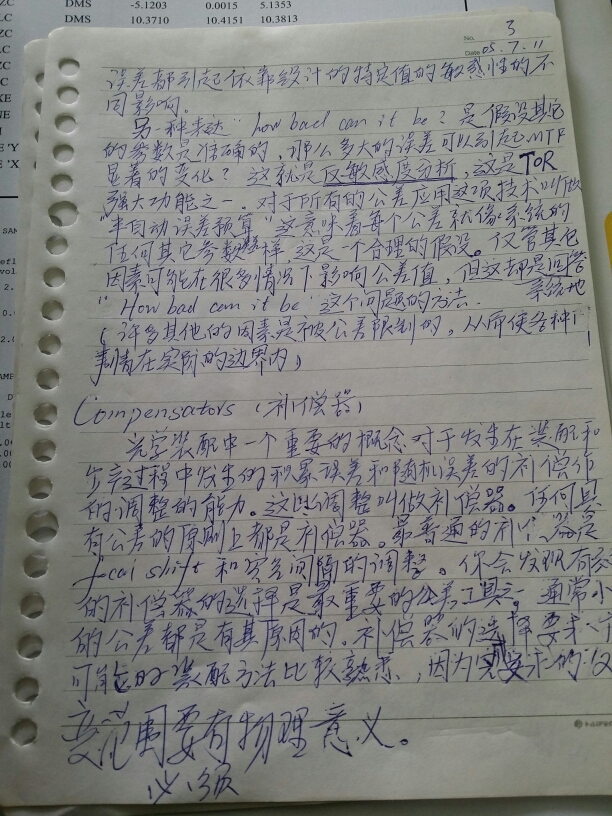 DMS -5.1203 0.0015 5.1353
DMS 10.3710 10.4151 10.3813
No. 3
Date 05.7.11
误差都引起依靠统计的特定值的敏感性的不
同影响。
另一种表达"how bad can it be?是假设其它
的参数是准确的,那么多大的误差可以引起MTF
显著的变化?这就是反敏感度分析,这是TOR
强大功能之一。对于所有的公差应用这项技术叫做
"半自动误差预算"这意味着每个公差就像系统的
任何其它参数一样,这是一个合理的假设。仅管其它
因素可能在很多情况下影响公差值,但这却是回答
"How bad can it be"这个问题的方法. 系统地
(许多其他的因素是被公差限制的,从而使各种
事情在实际的边界内)
Compensators(补偿器)
光学装配中一个重要的概念对于发生在装配和
生产过程中发生的积累误差和随机误差的补偿作
的调整的能力。这些调整叫做补偿器。任何具
有公差的原则上都是补偿器。最普通的补偿器是
focal shift和空气间隔的调整。你会发现有效
的补偿器的选择是最重要的公差工具之一。通常小
的公差都是有其原因的。补偿器的选择要求
可能的装配方法比较熟悉,因为要求的
变范围要有物理意义。
必须